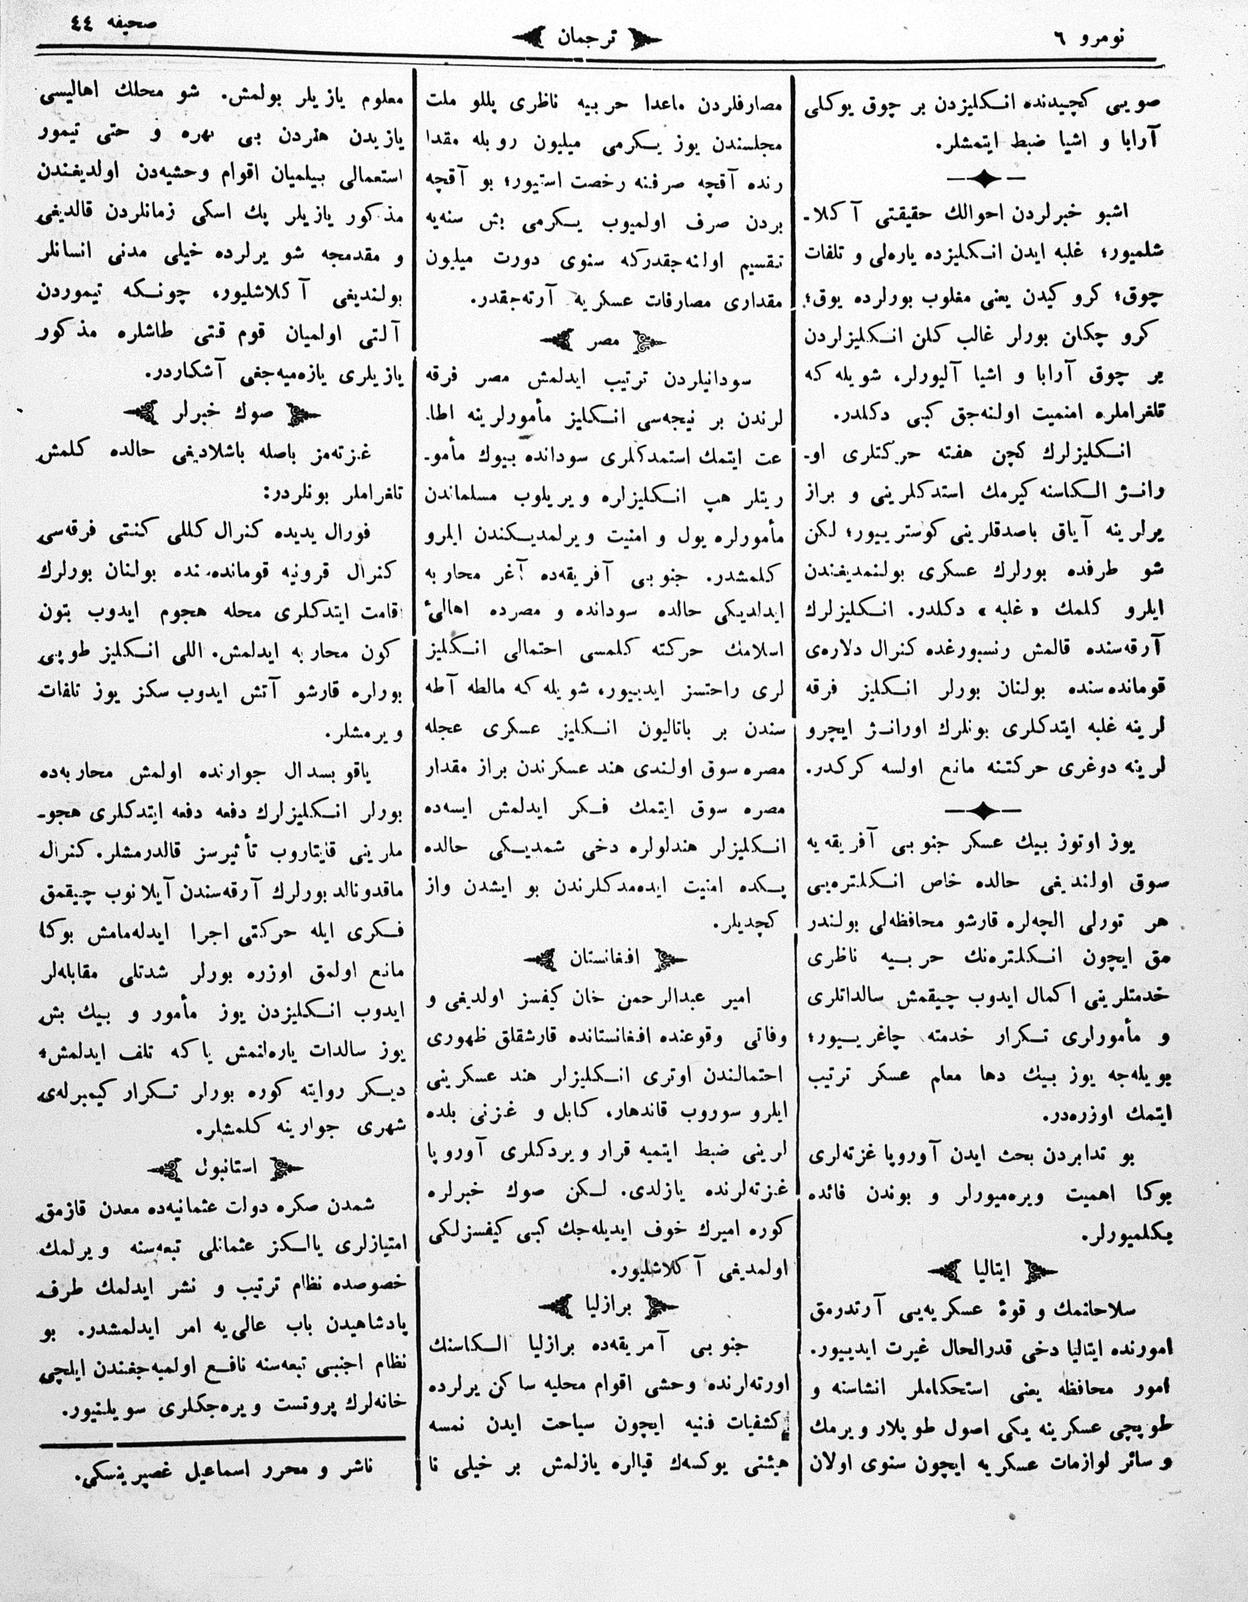 نومرو ٦
ترجمان
صحیفه ٤٤
صویی كچیدنده انـكلیزدن بر چوق یوكلی
آرابا و اشیا ضبط ایتمشلر.
اشبو خبرلردن احوالك حقیقتی آكلا۔
شلمیور؛ غلبه ایدن انـكلیزده یاره‌لی و تلفات
چوق؛ كرو كیدن یعنی مغلوب بورلرده یوق؛
كرو چكان بورلر غالب كلن انـكلیزلردن
بر چوق آرابا و اشیا آلیورلر، شویله كه
تلغراملره امنمیت اولنه‌جق كبی دكلدر.
انـكلیزلرك كچن هفته حركتلری او۔
رانـژ الـكاسنه كیرمك استدكلرینی و براز
یرلرینه آیاق باصدقلرینی كوستریبور؛ لكن
شو طرفده بورلرك عسكری بولنمدیغندن
ایلرو كلمك «غلبه» دكلدر. انـكلیزلرك
آرقه‌سنده قالمش رنسبورغده كنرال دلاره‌ی
قومانده‌سنده بولنان بورلر انـكلیز فرقه
لرینه غلبه ایتدكلری بونلرك اورانـژ ایچرو
لرینه دوغری حركتنه مانع اولسه كركدر.
یوز اوتوز بیك عسكر جنوبی آفریقه‌یه
سوق اولندیغی حالده خاص انـكلتره‌یی
هر تورلی الچه‌لره قارشو محافظه‌لی بولندر
مق ایچون انـكلتره‌نك حربیه ناظری
خدمتلرینی اكمال ایدوب چیقمش سالداتلری
و مأمورلری تـكرار خدمته چاغریـیور؛
بویله‌جه یوز بیك دها معام عسكر ترتیب
ایتمك اوزره‌در.
بو تدابردن بحث ایدن آوروپا غزته‌لری
بوكا اهمیت ویره‌میورلر و بوندن فائده
بكلمیورلر.
ایتالیا
سلاحانمك و قوهٔ عسكریه‌یی آرتدرمق
امورنده ایتالیا دخی قدرالحال غیرت ایدییور.
امور محافظه یعنی استحكاملر انشاسنه و
طوپچی عسكرینه یكی اصول طوپلار ویرمك
و سائر لوازمات عسكریه ایچون سنوی اولان
مصارفلردن ماعدا حربیه ناظری پللو ملت
مجلسندن یوز یـكرمی میلیون روبله مقدا
رنده آقچه صرفنه رخصت استیور؛ بو آقچه
بردن صرف اولمیوب یـكرمی بش سنه‌یه
تـقسیم اولنه‌جقدركه سنوی دورت میلیون
مقداری مصارفات عسكریه آرته‌جقدر.
مصر
سودانیلردن ترتیب ایدلمش مصر فرقه
لرندن بر نیجه‌سی انـكلیز مأمورلرینه اطا۔
عت ایتمك استمدكلری سودانده بیوك مأمو۔
ریتلر هپ انـكلیزلره ویریلوب مسلماندن
مأمورلره یول و امنیت ویرلمدیـكندن ایلرو
كلمشدر. جنوبی آفریقه‌ده آغر محاربه
ایدلدیكی حالده سودانده و مصرده اهالیٔ
اسلامك حركته كلمسی احتمالی انـكلیز
لری راحتسز ایدییور، شویله كه مالطه آطه
سندن بر باتالیون انـكلیز عسكری عجله
مصره سوق اولندی هند عسكرندن براز مقدار
مصره سوق ایتمك فـكر ایدلمش ایسه‌ده
انـكلیزلر هندلولره دخی شمدیـكی حالده
پـكده امنیت ایده‌مدكلرندن بو ایشدن واز
كچدیلر.
افغانستان
امیر عبدالرحمن خان كیفسز اولدیغی و
وفاتی وقوعنده افغانستانده قارشقلق ظهوری
احتمالندن اوتری انـكلیزلر هند عسكرینی
ایلرو سوروب قاندهار، كابل و غزنی بلده
لرینی ضبط ایتمیه قرار ویردكلری آوروپا
غزته‌لرنده یازلدی. لـكن صوك خبرلره
كوره امیرك خوف ایدیله‌جك كبی كیفسزلكی
اولمدیغی آكلاشلیور.
برازلیا
جنوبی آمریقه‌ده برازلیا الـكاسنك
اورته‌لرنده وحشی اقوام محلیه ساكن یرلرده
كشفیات فنیه ایچون سیاحت ایدن نمسه
هیئتی یوكسه‌ك قیالره یازلمش بر خیلی نا
معلوم یازیلر بولمش. شو محلك اهالیسی
یازیدن هنردن بی بهره و حتی تیمور
استعمالی بیلمیان اقوام وحشیه‌دن اولدیغندن
مذكور یازیلر پك اسكی زمانلردن قالدیغی
و مقدمجه شو یرلرده خیلی مدنی انسانلر
بولندیغی آكلاشلیور، چونـكه تیموردن
آلتی اولمیان قوم قتی طاشلره مذكور
یازیلری یازه‌میه‌جغی آشكاردر.
صوك خبرلر
غزته‌مز باصله باشلادیغی حالده كلمش
تلغراملر بونلردر:
فورال یدیده كنرال كللی كنتی فرقه‌سی
كنرال قرونیه قومانده‌سنده بولنان بورلرك
اقامت ایتدكلری محله هجوم ایدوب بتون
كون محاربه ایدلمش. اللی انـكلیز طوپی
بورلره قارشو آتش ایدوب سكز یوز تلفات
ویرمشلر.
یاقوبسدال جوارنده اولمش محاربه‌ده
بورلر انـكلیزلرك دفعه دفعه ایتدكلری هجو۔
ملرینی قایتاروب تأثیرسز قالدرمشلر. كنرال
ماقدونالد بورلرك آرقه‌سندن آیلانوب چیقمق
فـكری ایله حركتی اجرا ایدله‌مامش بوكا
مانع اولمق اوزره بورلر شدتلی مقابله‌لر
ایدوب انـكلیزدن یوز مأمور و بیك بش
یوز سالدات یاره‌لنمش یاكه تلف ایدلمش؛
دیـكر روایته كوره بورلر تـكرار كیمبرله‌ی
شهری جوارینه كلمشلر.
استانبول
شمدن صكره دولت عثمانیه‌ده معدن قازمق
امتیازلری یالـكز عثمانلی تبعه‌سنه ویرلمك
خصوصده نظام ترتیب و نشر ایدلمك طرف
پادشاهیدن باب عالی‌یه امر ایدلمشدر. بو
نظام اجنبی تبعه‌سنه نافـع اولمیه‌جغندن ایلچی
خانه‌لرك پروتست ویره‌جكلری سویلنیور.
ناشر و محرر اسماعیل غصپرینسكی.